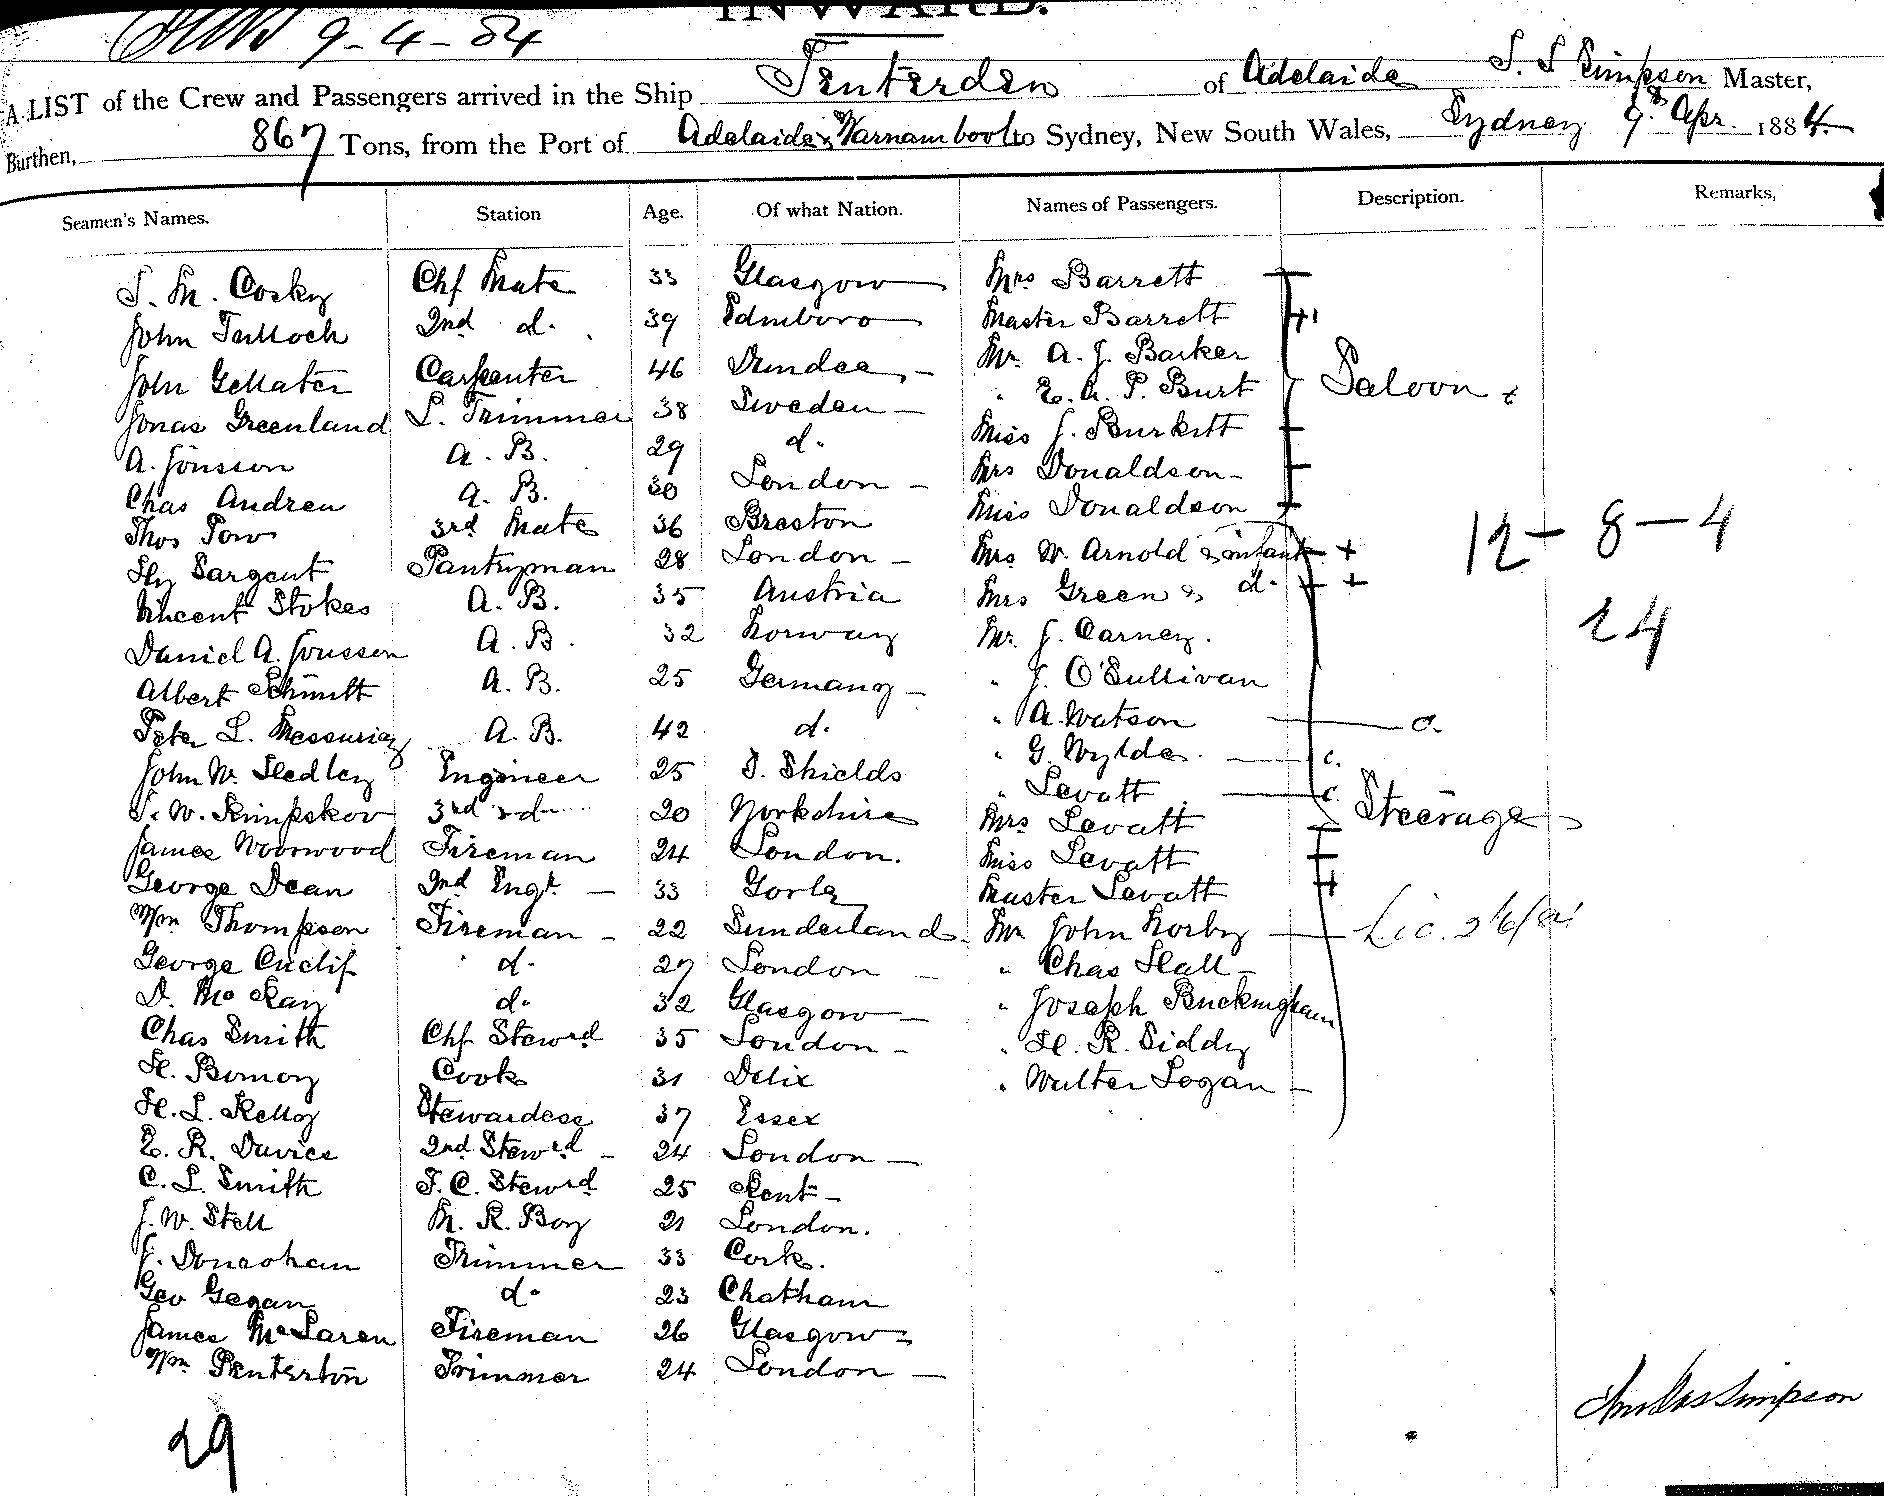 INWARD.
9-4-84
A LIST of the Crew and Passengers arrived in the Ship Tenterden of Adelaide S. S Simpson Master,
Burthen, 867 Tons, from the Port of Adelaide & Warnambool to Sydney, New South Wales, Sydney 9th Apr. 1884
Seamen's Names. Station Age. Of what Nation. Names of Passengers. Description. Remarks,
S. M. Cosky Chf Mate 33 Glasgow Mrs Barrett
John Tulloch 2nd d. 39 Edinboro Master Barrett
John Gellater Carpenter 46 Dundee Mr. A. J. Barker
Jonas Greenland L. Trimmer 38 Sweden " E. A. P. Burt Saloon
A. Jonsson A. B. 29 d. Miss J. Burkitt
Chas Andrea A. B. 30 London Mrs Donaldson
Thos Tow 3rd Mate 36 Breston Miss Donaldson
Hy Sargent Pantryman 28 London Mrs W. Arnold & infant + 12 - 8 - 4
Vincent Stokes A. B. 35 Austria Mrs Green & d. + +
Daniel A. Jonsson A. B. 32 Norway Mr. J. Carney. 24
Albert Schmitt A. B. 25 Germany " J. O'Sullivan
Peter L. A. B. 42 d. " A. Watson c.
John W. Hedley Engineer 25 S. Shields " G. Wylde. c.
S. W. 3rd d 20 Yorkshire " Levatt c.
James Woorwood Fireman 24 London. Mrs Levatt Steerage
George Dean 2nd Engr. 33 Miss Levatt
Wm Thompson Fireman 22 Sunderland Master Levatt
George Cuclif d. 27 London Mr John Norby Lic.
D. McKay d. 32 Glasgow " Chas Hall
Chas Smith Chf Stewrd 35 London " Joseph Buckingham
H. Bomoy Cook 31 Delix " H. R. Siddy
H. L. Kelloy Stewardess 37 Essex " Walter Logan
E. R. Davies 2nd Stewrd 24 London
C. L. Smith F. C. Stewrd 25 Kent
J. W. Stell M. R. Boy 21 London.
J. Donaohan Trimmer 33 Cork.
Geo Gegan d. 23 Chatham
James McLaren Fireman 26 Glasgow
Wm Penterton Trimmer 24 London
Simpson
29